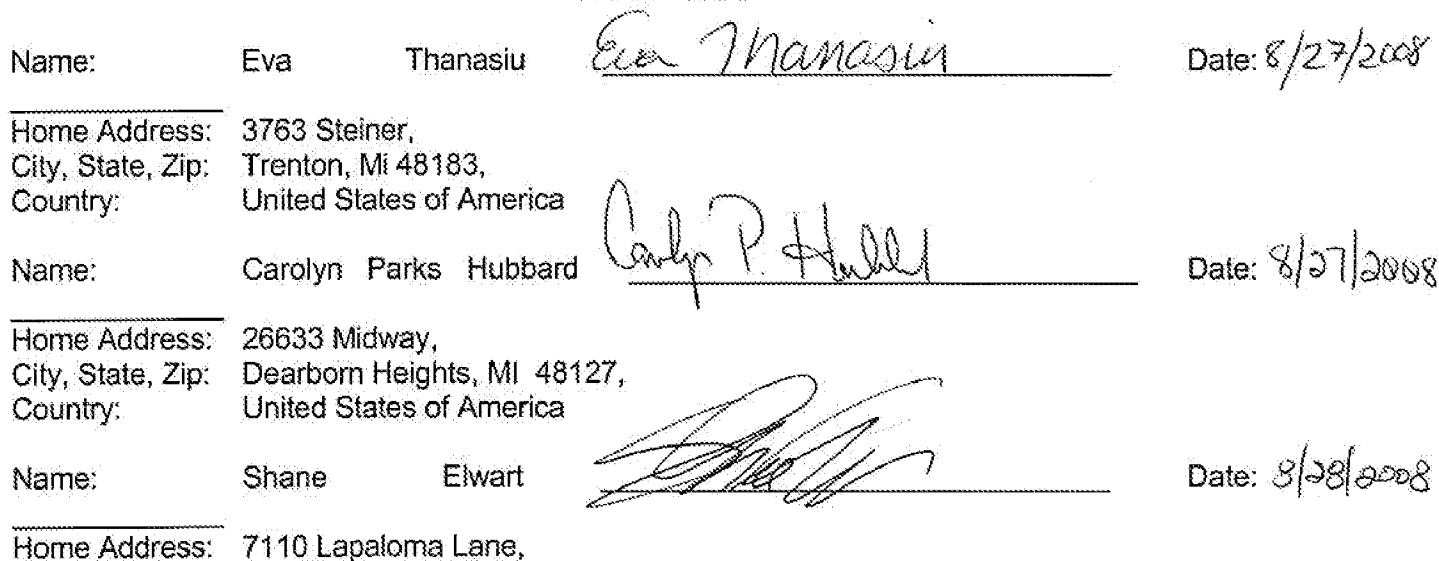 Name: Eva Thanasiu Eva Thanasiu Date: 8/27/2008
Home Address: 3763 Steiner,
City, State, Zip: Trenton, Mi 48183,
Country: United States of America
Name: Carolyn Parks Hubbard Carolyn P. Hubbard Date: 8/27/2008
Home Address: 26633 Midway,
City, State, Zip: Dearborn Heights, MI 48127,
Country: United States of America
Name: Shane Elwart Date: 8/28/2008
Home Address: 7110 Lapaloma Lane,